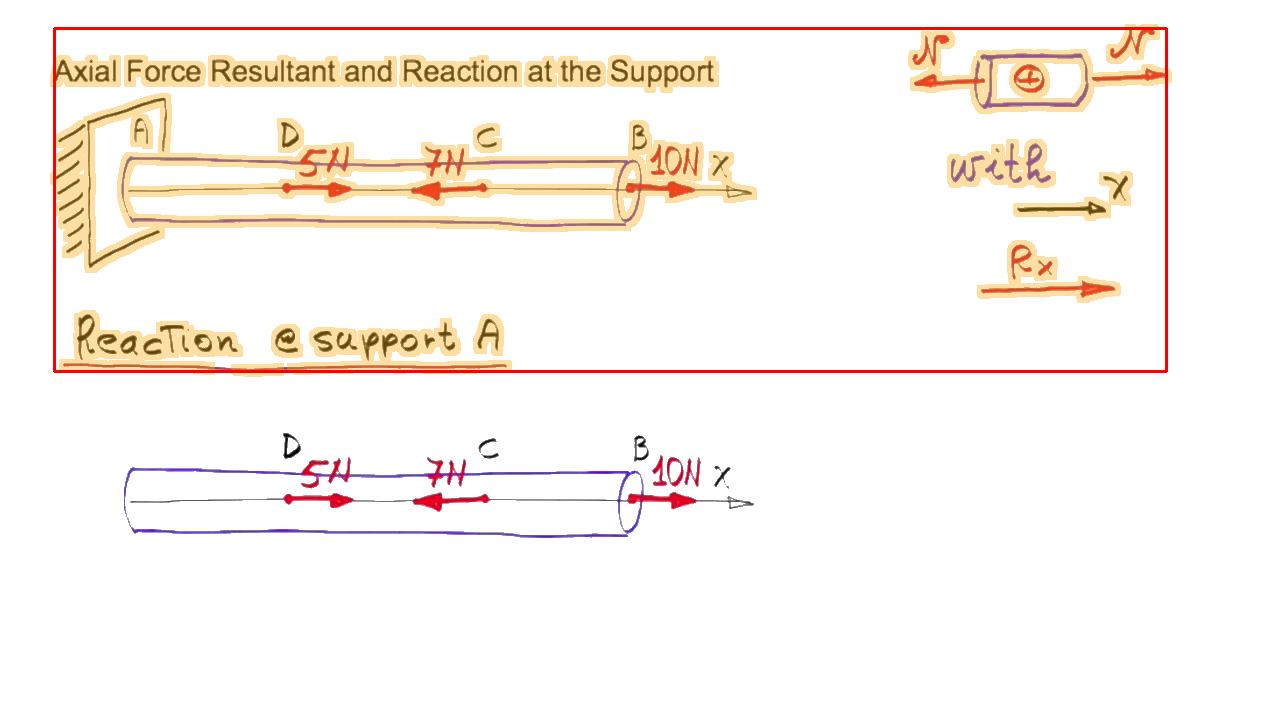 Axial Force Resultant and Reaction at the Support
N N
+
A D 5N 7N C B 10N X
with
X
Rx
Reaction @ support A
D 5N 7N C B 10N X